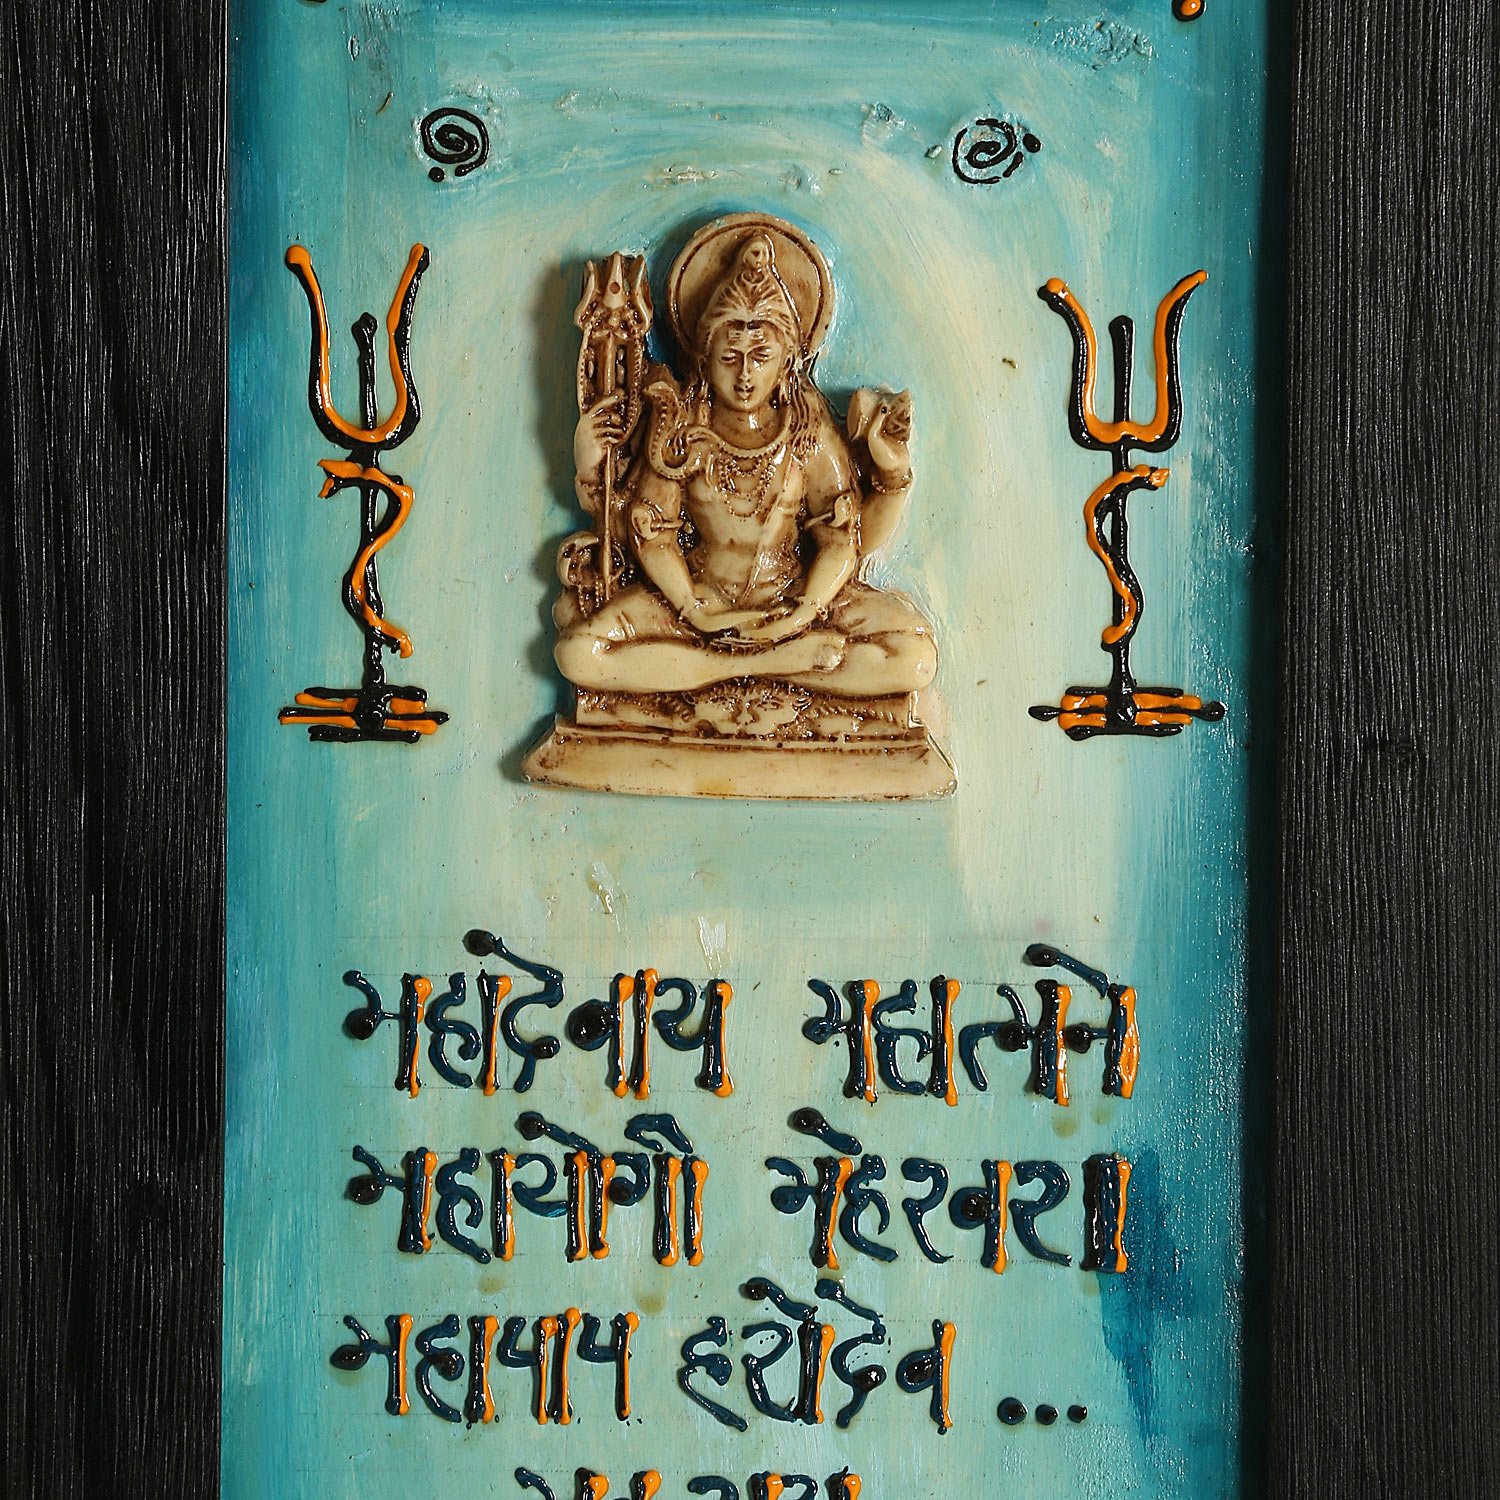 महादेवाय महात्मने
महायोगी मेहरवरा
महापाप हरोदेव ...